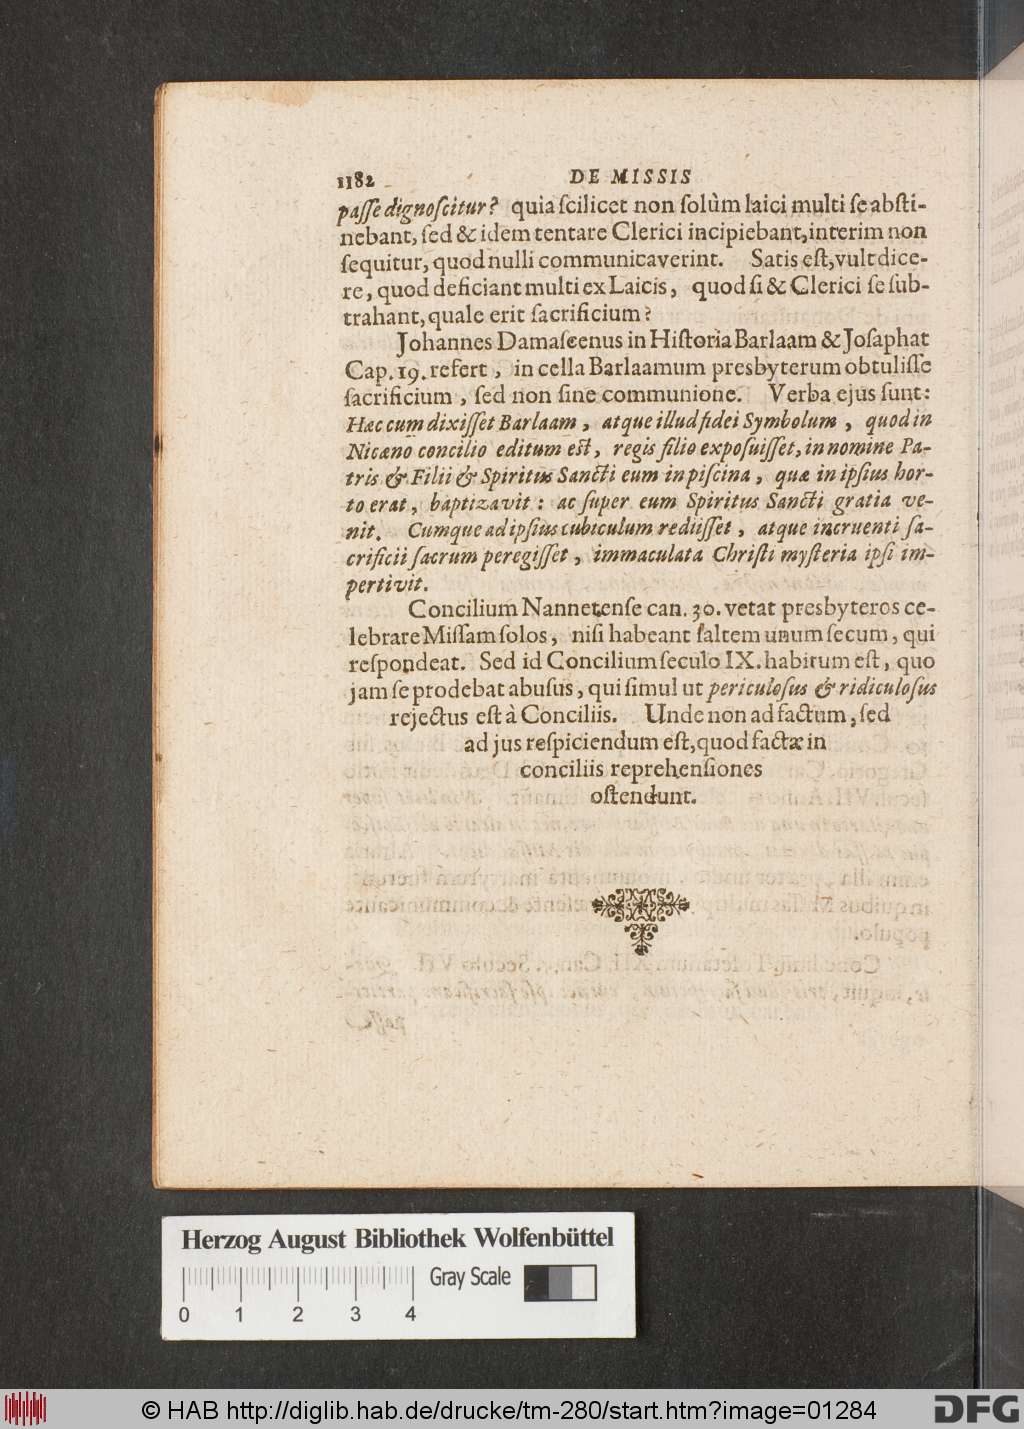 1182 DE MISSIS
passe dignoscitur? quia scilicet non solùm laici multi se absti-
nebant, sed & idem tentare Clerici incipiebant, interim non
sequitur, quod nulli communicaverint. Satis est, vult dice-
re, quod deficiant multi ex Laicis, quod si & Clerici se sub-
trahant, quale erit sacrificium?
Johannes Damascenus in Historia Barlaam & Josaphat
Cap. 19. refert, in cella Barlaamum presbyterum obtulisse
sacrificium, sed non sine communione. Verba ejus sunt:
Hæc cum dixisset Barlaam, atque illud fidei Symbolum, quod in
Nicæno concilio editum est, regis filio exposuisset, in nomine Pa-
tris & Filii & Spiritus Sancti eum in piscina, quæ in ipsius hor-
to erat, baptizavit: ac super eum Spiritus Sancti gratia ve-
nit. Cumque ad ipsius cubiculum rediisset, atque incruenti sa-
crificii sacrum peregisset, immaculata Christi mysteria ipsi im-
pertivit.
Concilium Nannetense can. 30. vetat presbyteros ce-
lebrare Missam solos, nisi habeant saltem unum secum, qui
respondeat. Sed id Concilium seculo IX. habitum est, quo
jam se prodebat abusus, qui simul ut periculosus & ridiculosus
rejectus est à Conciliis. Unde non ad factum, sed
ad jus respiciendum est, quod factæ in
conciliis reprehensiones
ostendunt.
Herzog August Bibliothek Wolfenbüttel
Gray Scale
0 1 2 3 4
© HAB http://diglib.hab.de/drucke/tm-280/start.htm?image=01284
DFG